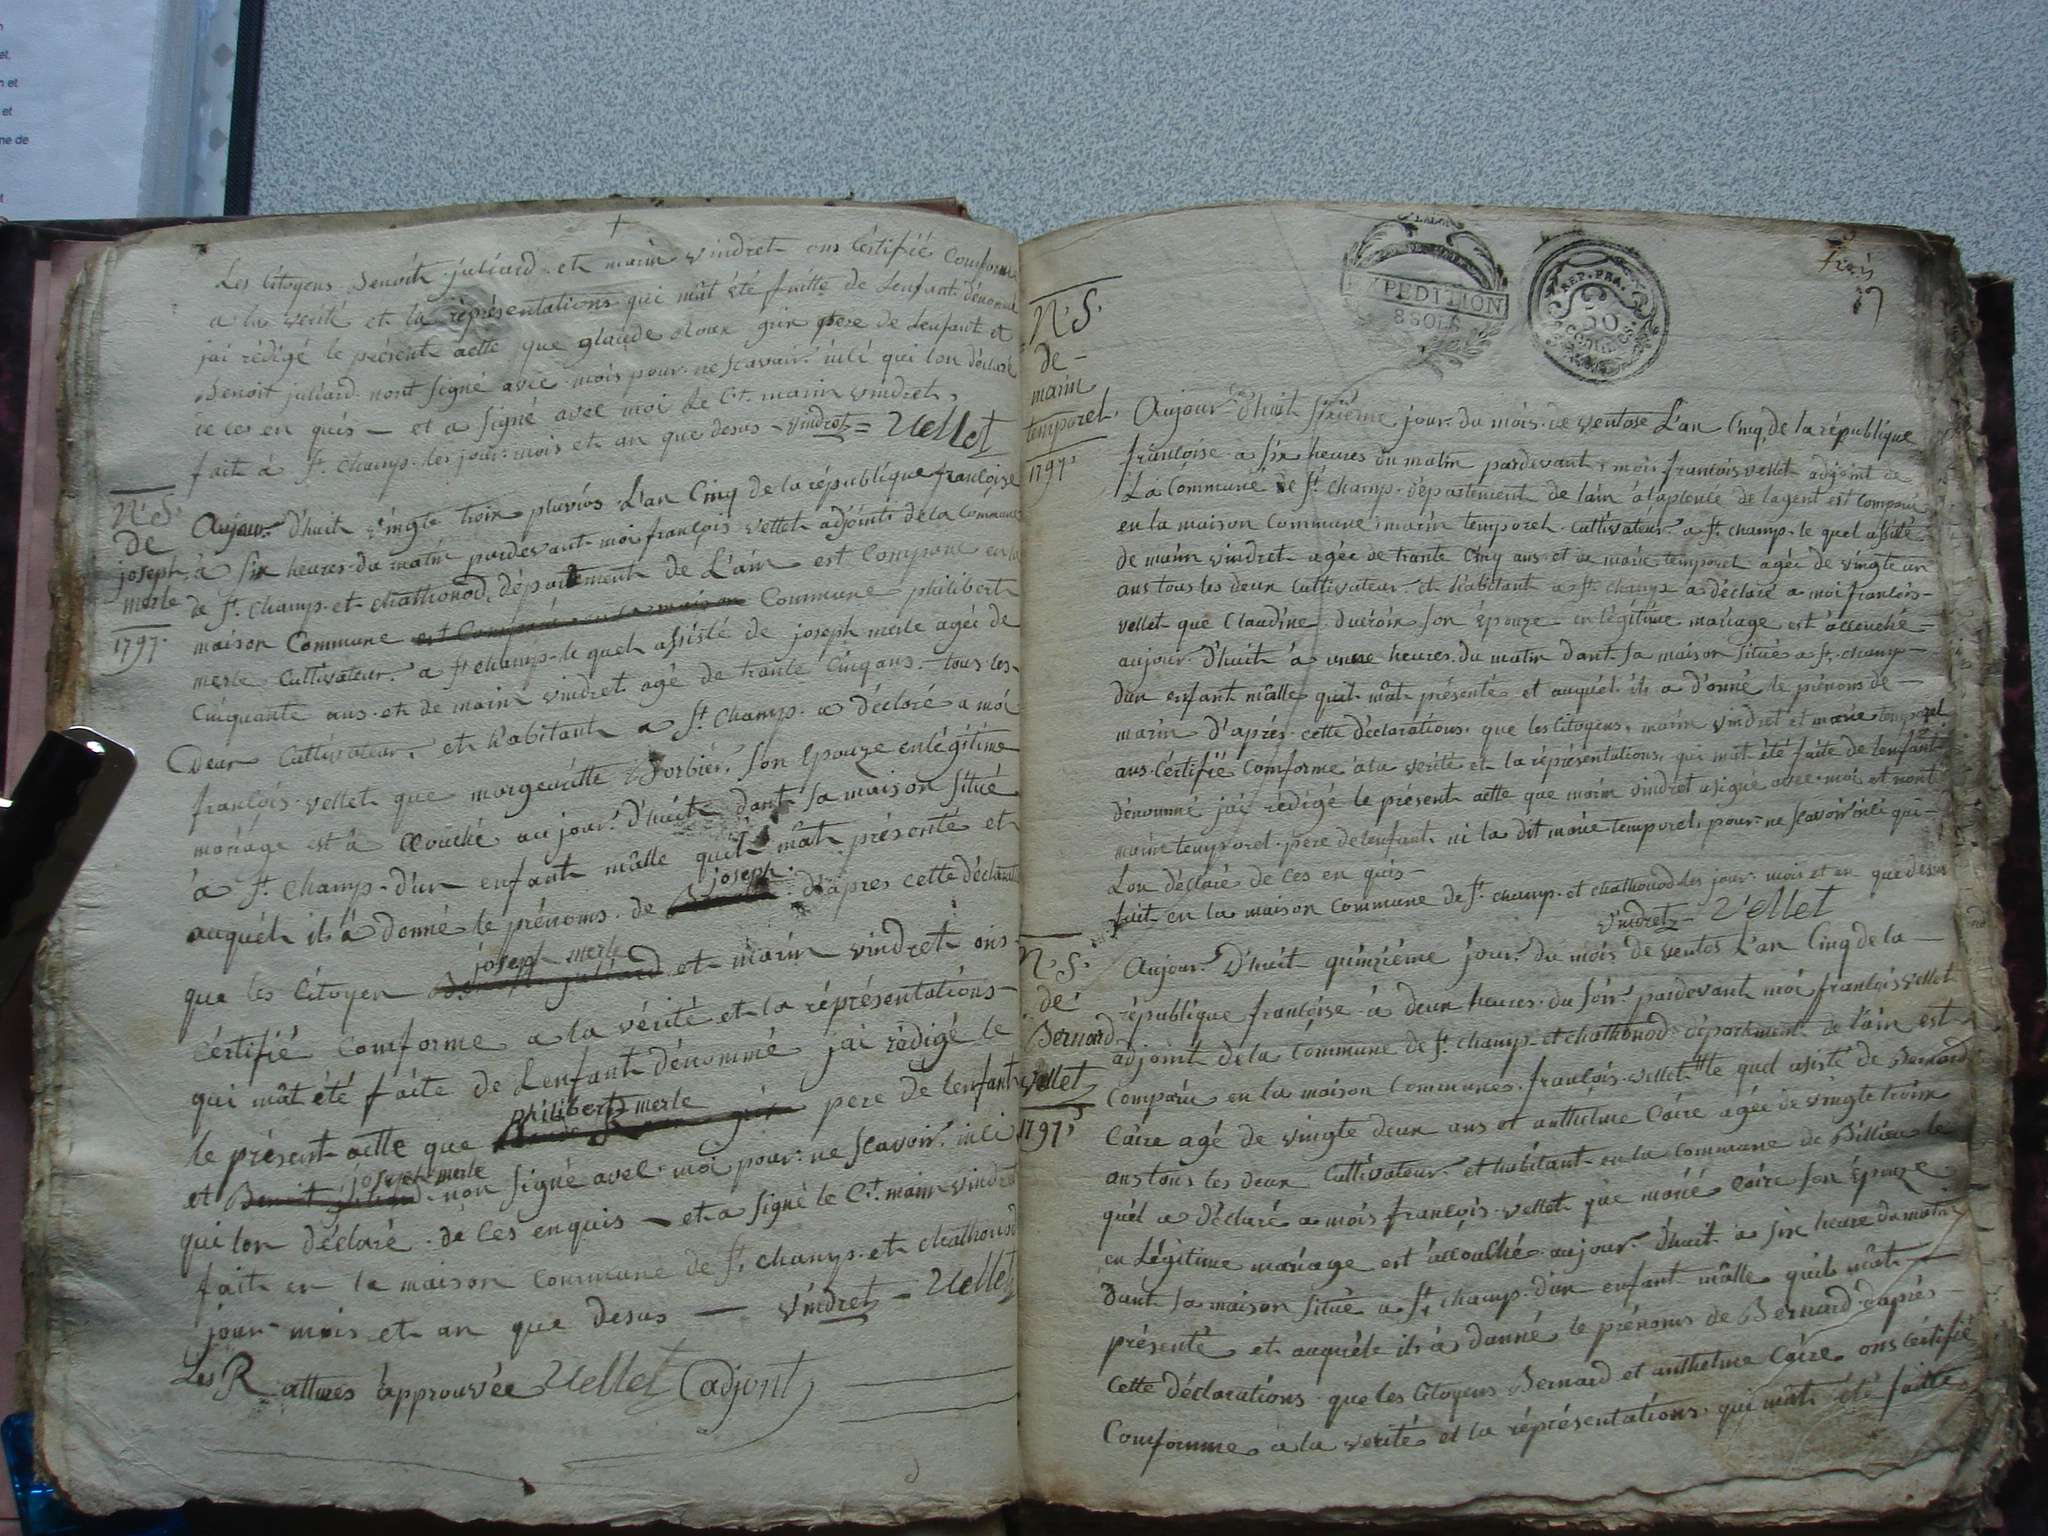 et,
n et
et
ne de
t
Les Citoyens Benoit juliard et marin vindret ons Cértifié Comforme
a la verité et la réprésentations qui mât été faitte de Lenfant dénommé
jai rédigé le présent actte que glaude Roux grin pere de Lenfant et
Benoit juliard nont signé avec mois pour ne scavoir inci qui lon déclaré
de ces en quis — et a signé avec moi le Ct. marin vindret,
fait à St. champ les jour mois et an que desus - vindret = Vellet
N. S.
de
joseph
merle
1797.
Aujour. d'huit vingte troix pluvios L'an Cinq de la république françoise
à six heures du matin pardevant moi françois vellet adjoint de la Commune
de St. champ et chathonod, département de L'ain est Comparue en la
maison Commune est Comparue en la maison Commune philibert
merle Cultivateur. a St champ le quel assisté de joseph merle agée de
Cinquante ans et de marin vindret agé de trante Cinq ans tous les
Deux Cultivateur, et habitant a St champ a déclaré a moi
françois vellet que margeuritte Sorbier, son Epouze en légitime
mariage est à Couché aujour. d'huit dant sa maison situé
à St. champ d'un enfant mâlle quil mât présenté et
auquél il à donné le prénoms de joseph. d'apres cette déclarat
joseph merle
que les Citoyen Benoit juliard et marin vindret ons
Cértifié Comforme a la vérité et la réprésentations
qui mât été faite de Lenfant dénommé jai rédigé le
philibert merle
le présent actte que pere de lenfant
joseph merle
et Benoit juliard non signé avec moi pour ne scavoir inci
qui lon déclaré de ces enquis — et a signé le Ct. marin vindret
fait en la maison Commune de St. champ et chathonod
jour mois et an que desus — vindret — Vellet
Les R attures approuvée Vellet adjont
EXPEDITION
8 SOLS
REP. FRA.
50
N. S.
de
marin
temporel.
1797.
Aujour. d'huit sixiéme jour. du mois de ventose L'an Cinq de la république
françoise a six heures du matin pardevant mois françois vellet adjoint de
La Commune de St. champ département de lain a laplence de lagent est comparu
en la maison Commune marin temporel Cultivateur a St. champ le quel assité
de marin vindret agée de trante Cinq ans et de marie temporel agée de vingte un
ans tous les deux Cultivateur et habitant a St. champ a déclaré a moi françois
vellet que Claudine son Epouze en légitime mariage est accouché
aujour. d'huit à heures du matin dant sa maison situé a St. champ
dun enfant mâlle quil mât présenté et auquél il a donné le prénoms de
marin d'aprés cette déclarations, que les Citoyens, marin vindret et marie temporel
ans Cértifié Comforme a la verité et la réprésentations, qui mât été faite de lenfant
dénommé jai rédigé le présent actte que marin vindret a signé avec moi et nont
marin temporel pere de lenfant, ni la dit marie temporel, pour ne scavoir inci qui
Lon déclaré de ces en quis
fait en la maison Commune de St. champ et chathonod les jour mois et an que desus
vindret — Vellet
N. S.
de
Bernard
Vellet
1797.
Aujour. D'huit quinziéme jour. du mois de ventos L'an Cinq de la
république françoise à deux heures du soir. pardevant moi françois vellet
adjoint de la Commune de St. champ et chathonod département de l'ain est
Comparu en la maison Communes françois vellet le quel asisté de Bernard
Caire agé de vingte deux ans et anthelme Caire agée de vingte troix
ans tous les deux Cultivateur et habitant en la Commune de Billieu le
quél a déclaré a mois françois vellet que marié Caire son Epouze
en Légitime mariage est accouché aujour. d'huit à six heure du matin
Dant sa maison situé a St champ d'un enfant mâlle quil mât
présenté et auquéle il à danné le prénoms de Bernard d'aprés
Cette déclarations que les Citoyens Bernard et anthelme Caire ons Cértifié
Comforme à la verité et la réprésentations qui mât été faitte